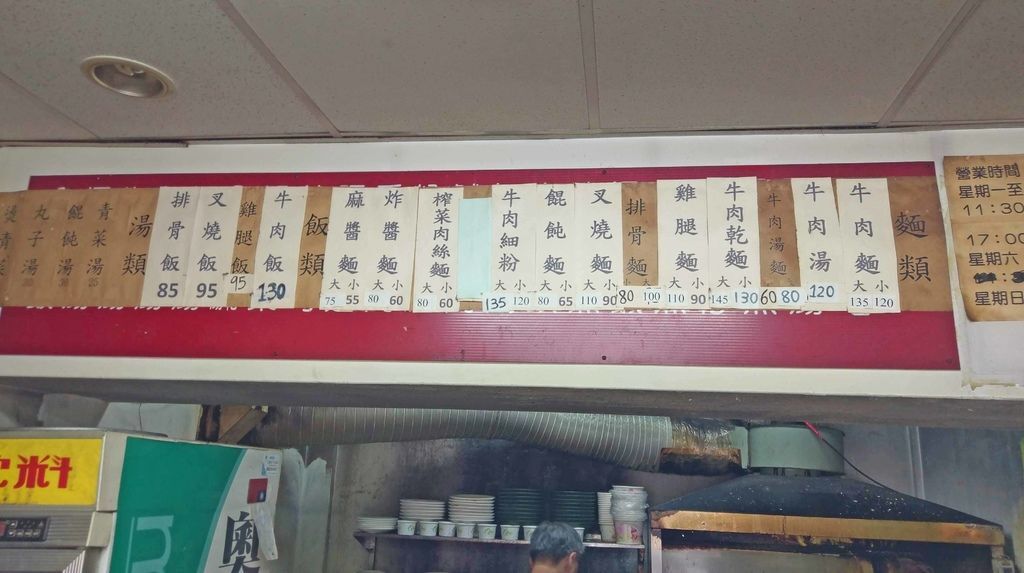 麵類
牛肉麵 大 小 135 120
牛肉湯 120
牛肉湯麵 60 80
牛肉乾麵 大 小 145 130
雞腿麵 大 小 110 90
排骨麵 80 100
叉燒麵 大 小 110 90
餛飩麵 大 小 80 65
牛肉細粉 大 小 135 120
榨菜肉絲麵 大 小 80 60
炸醬麵 大 小 80 60
麻醬麵 大 小 75 55
飯類
牛肉飯 130
雞腿飯 95
叉燒飯 95
排骨飯 85
湯類
青菜湯
餛飩湯
丸子湯
營業時間
星期一至
11:30
17:00
星期六
星期日
料
奧